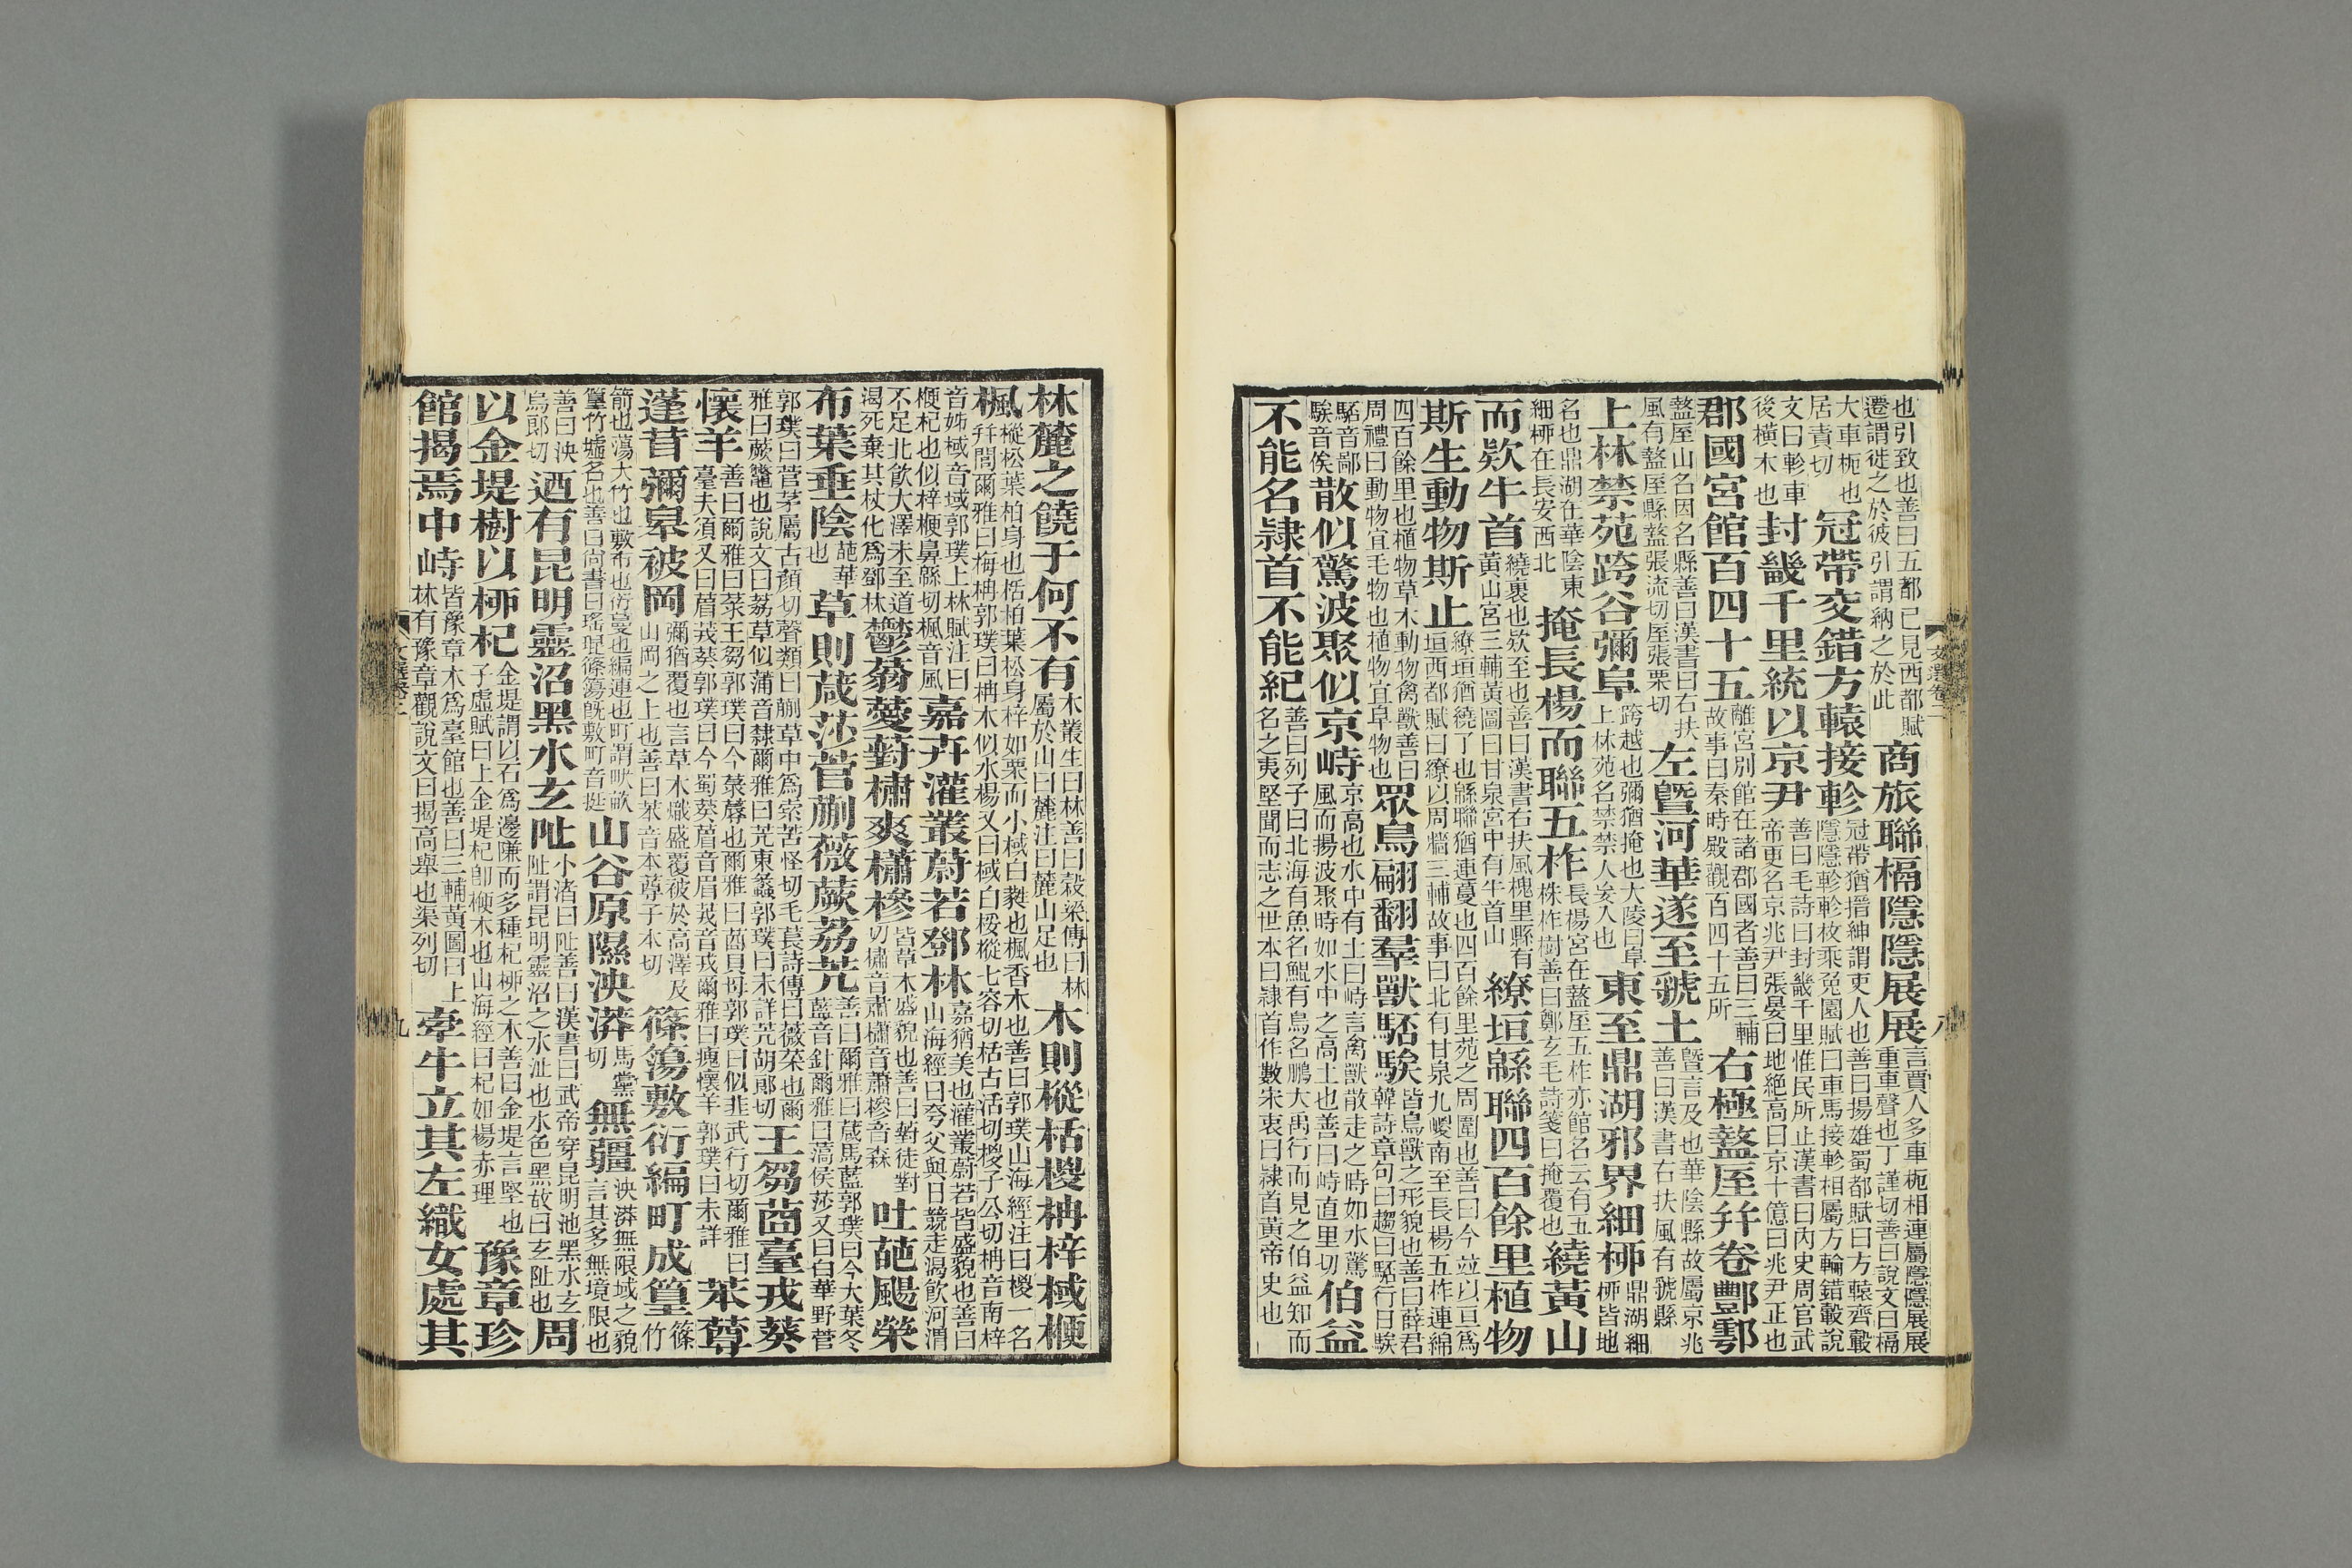 也引致也善曰五都已見西都賦遷謂徙之於彼引謂納之於此商旅聯槅隱隱展展言賈人多車枙相連屬隱隱展展重車聲也丁謹切善曰說文曰槅
大車枙也居責切冠帶交錯方轅接軫冠帶猶搢紳謂吏人也善曰揚雄蜀都賦曰方轅齊轂隱隱軫軫枚乘兔園賦曰車馬接軫相屬方輪錯轂說
文曰軫車後橫木也封畿千里統以京尹善曰毛詩曰封畿千里惟民所止漢書曰內史周官武帝更名京兆尹張晏曰地絕高曰京十億曰兆尹正也
郡國宮館百四十五離宮別館在諸郡國者善曰三輔故事曰秦時殿觀百四十五所右極盩厔并卷酆鄠
盩厔山名因名縣善曰漢書曰右扶風有盩厔縣盩張流切厔張栗切左暨河華遂至虢土暨言及也華陰縣故屬京兆善曰漢書右扶風有虢縣
上林禁苑跨谷彌阜跨越也彌猶掩也大陵曰阜上林苑名禁禁人妄入也東至鼎湖邪界細柳鼎湖細柳皆地
名也鼎湖在華陰東細柳在長安西北掩長楊而聯五柞長楊宮在盩厔五柞亦館名云有五株柞樹善曰鄭玄毛詩箋曰掩覆也繞黃山
而欵牛首繞裹也欵至也善曰漢書右扶風槐里縣有黃山宮三輔黃圖曰甘泉宮中有牛首山繚垣緜聯四百餘里植物
斯生動物斯止繚垣猶繞了也緜聯猶連蔓也四百餘里苑之周圍也善曰今並以亘爲垣西都賦曰繚以周牆三輔故事曰北有甘泉九嵕南至長楊五柞連綿
四百餘里也植物草木動物禽獸善曰周禮曰動物宜毛物也植物宜阜物也眾鳥翩翻羣獸駓騃皆鳥獸之形貌也善曰薛君韓詩章句曰趨曰駓行曰騃
駓音鄙騃音俟散似驚波聚似京峙京高也水中有土曰峙言禽獸散走之時如水驚風而揚波聚時如水中之高土也善曰峙直里切伯益
不能名隸首不能紀善曰列子曰北海有魚名鯤有鳥名鵬大禹行而見之伯益知而名之夷堅聞而志之世本曰隸首作數宋衷曰隸首黃帝史也
文選卷二
八
林麓之饒于何不有木叢生曰林善曰穀梁傳曰林屬於山曰麓注曰麓山足也木則樅栝椶柟梓棫楩
楓樅松葉柏身也栝柏葉松身梓如栗而小棫白蕤也楓香木也善曰郭璞山海經注曰椶一名幷閭爾雅曰梅柟郭璞曰柟木似水楊又曰棫白桵樅七容切栝古活切椶子公切柟音南梓
音姊棫音域郭璞上林賦注曰楩杞也似梓楩鼻緜切楓音風嘉卉灌叢蔚若鄧林嘉猶美也灌叢蔚若皆盛貌也善曰山海經曰夸父與日競走渴飲河渭
不足北飲大澤未至道渴死棄其杖化爲鄧林鬱蓊薆薱橚爽櫹槮皆草木盛貌也善曰薱徒對切橚音肅櫹音蕭槮音森吐葩颺榮
布葉垂陰葩華也草則葴莎菅蒯薇蕨荔芃善曰爾雅曰葴馬藍郭璞曰今大葉冬藍音針爾雅曰蒿侯莎又曰白華野菅
郭璞曰菅茅屬古顏切聲類曰蒯草中爲索苦怪切毛萇詩傳曰薇菜也爾雅曰蕨虌也說文曰荔草似蒲音隸爾雅曰芃東蠡郭璞曰未詳芃胡郎切王芻莔臺戎葵
懷羊善曰爾雅曰菉王芻郭璞曰今菉蓐也爾雅曰莔貝母郭璞曰似韭武行切爾雅曰臺夫須又曰菺茙葵郭璞曰今蜀葵菺音眉茙音戎爾雅曰瘣懷羊郭璞曰未詳苯䔿
蓬茸彌皋被岡彌猶覆也言草木熾盛覆被於高澤及山岡之上也善曰苯音本䔿子本切篠簜敷衍編町成篁篠竹
箭也蕩大竹也敷布也衍蔓也編連也町謂畎畝篁竹墟名也善曰尚書曰瑤琨篠簜旣敷町音挺山谷原隰泱漭馬黨切無疆泱漭無限域之貌言其多無境限也
善曰泱烏郎切迺有昆明靈沼黑水玄阯小渚曰阯善曰漢書曰武帝穿昆明池黑水玄阯謂昆明靈沼之水沚也水色黑故曰玄阯也周
以金堤樹以柳杞金堤謂以石爲邊隒而多種杞柳之木善曰金堤言堅也子虛賦曰上金堤杞卽楩木也山海經曰杞如楊赤理豫章珍
館揭焉中峙皆豫章木爲臺館也善曰三輔黃圖曰上林有豫章觀說文曰揭高舉也渠列切牽牛立其左織女處其
文選卷二
九